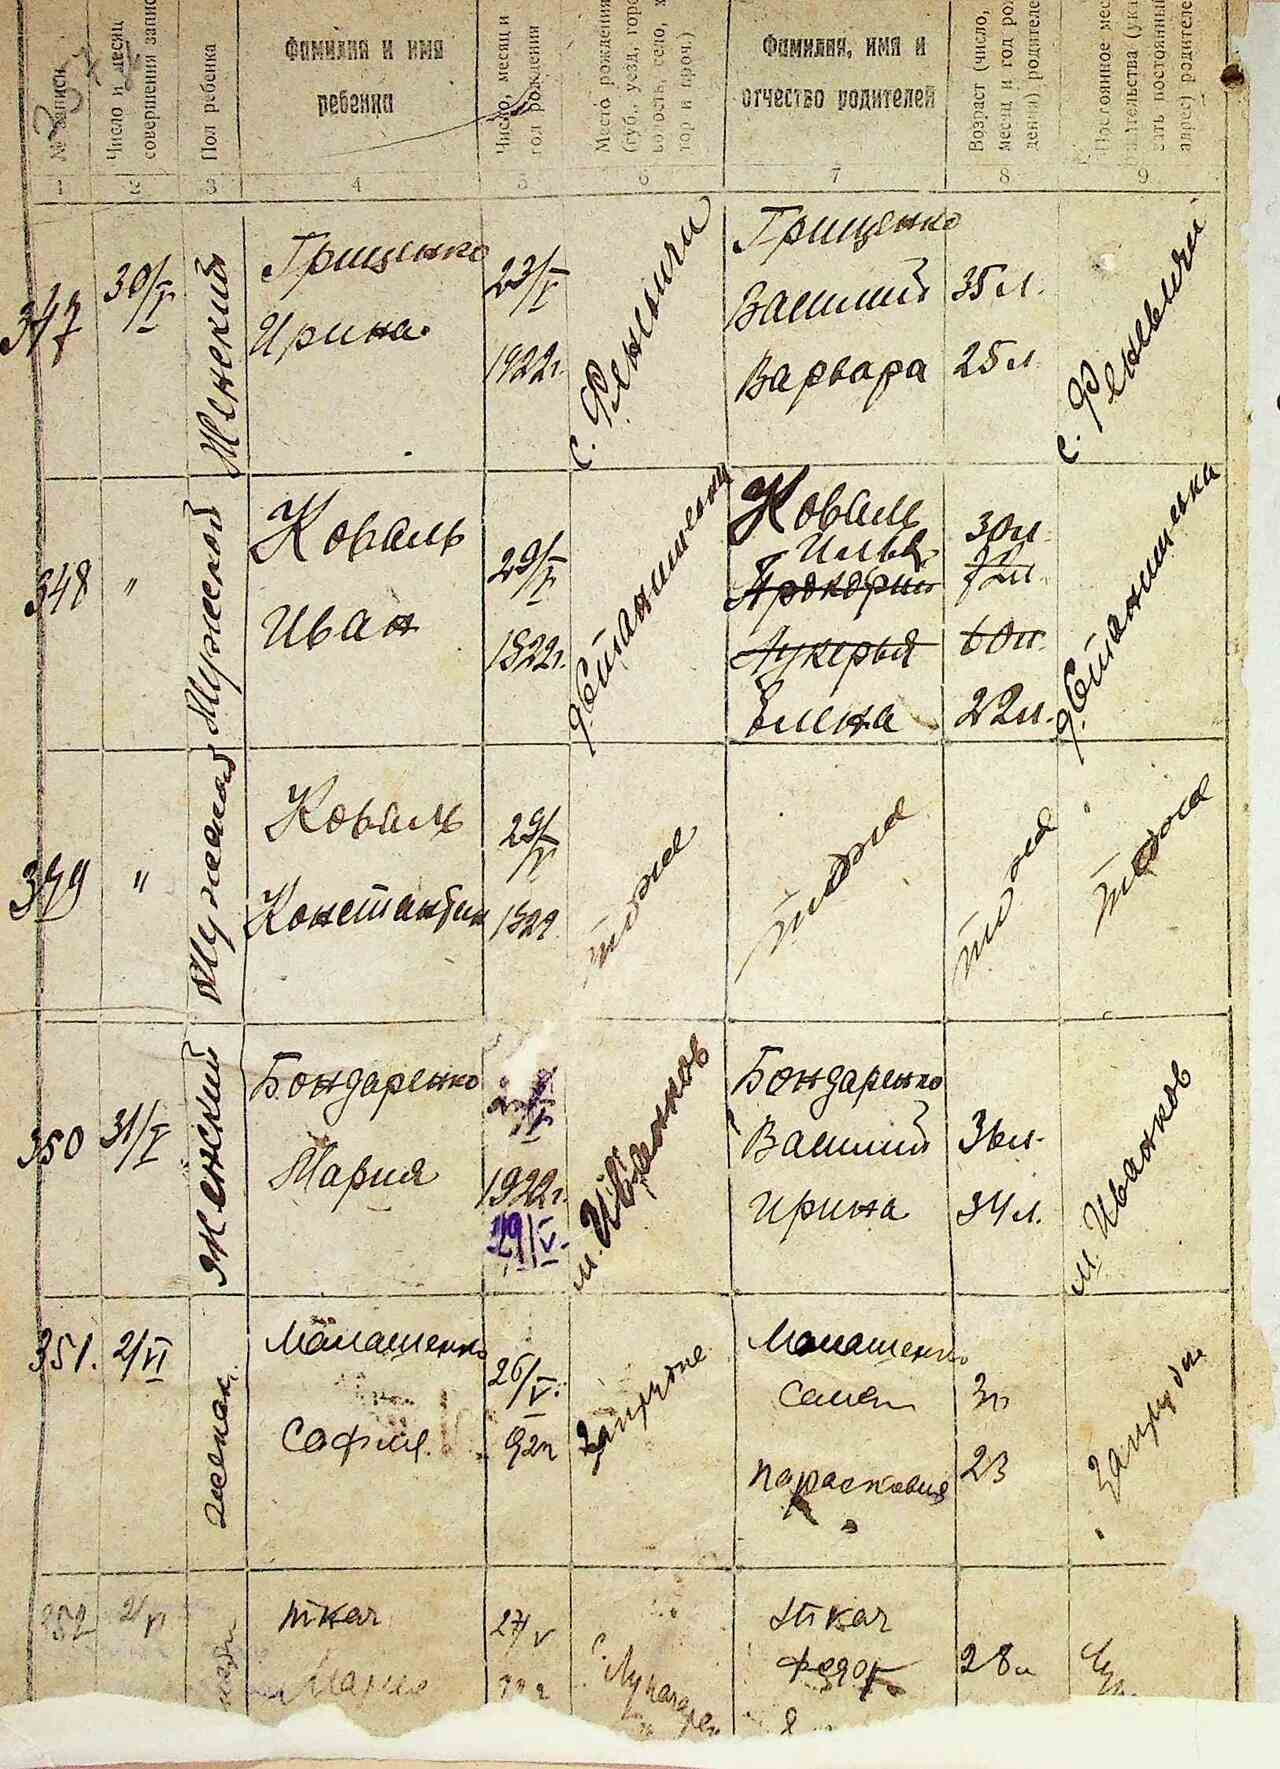 № записи
Число и месяц
совершения запис
Пол ребенка
Фамилия и имя
ребенка
Число, месяц и
год рождения
Место рождения
(губ., уезд, горо
волость, село, х
тор и проч.)
Фамилия, имя и
отчество родителей
Возраст (число,
месяц и год ро
дения) родителе
Постоянное мес
жительства (ука
зать постоянный
адрес) родителе
1 2 3 4 5 6 7 8 9
347
30/V
Женский
Грищенко
Ирина
23/V
1922г.
с. Феневичи
Грищенко
Василий 35 л.
Варвара 25 л.
с. Феневичи
348
"
Мужской
Коваль
Иван
29/V
1922г.
Коваль
Илья 30л.
Прокофий 72л.
Лукерья 60л.
Елена 22л.
349
"
Мужской
Коваль
Константин
29/V
1922
тоже
тоже
тоже
тоже
350
31/V
Женский
Бондаренко
Мария
1922г.
29/V.
м. Иванков
Бондаренко
Василий 36л.
Ирина 34л.
м. Иванков
351.
2/VI
женск.
Малашенко
София.
26/V.
92г
Малашенко
23
352
2/VI
Ткач
Мария
27/V
Ткач
Федор 28л